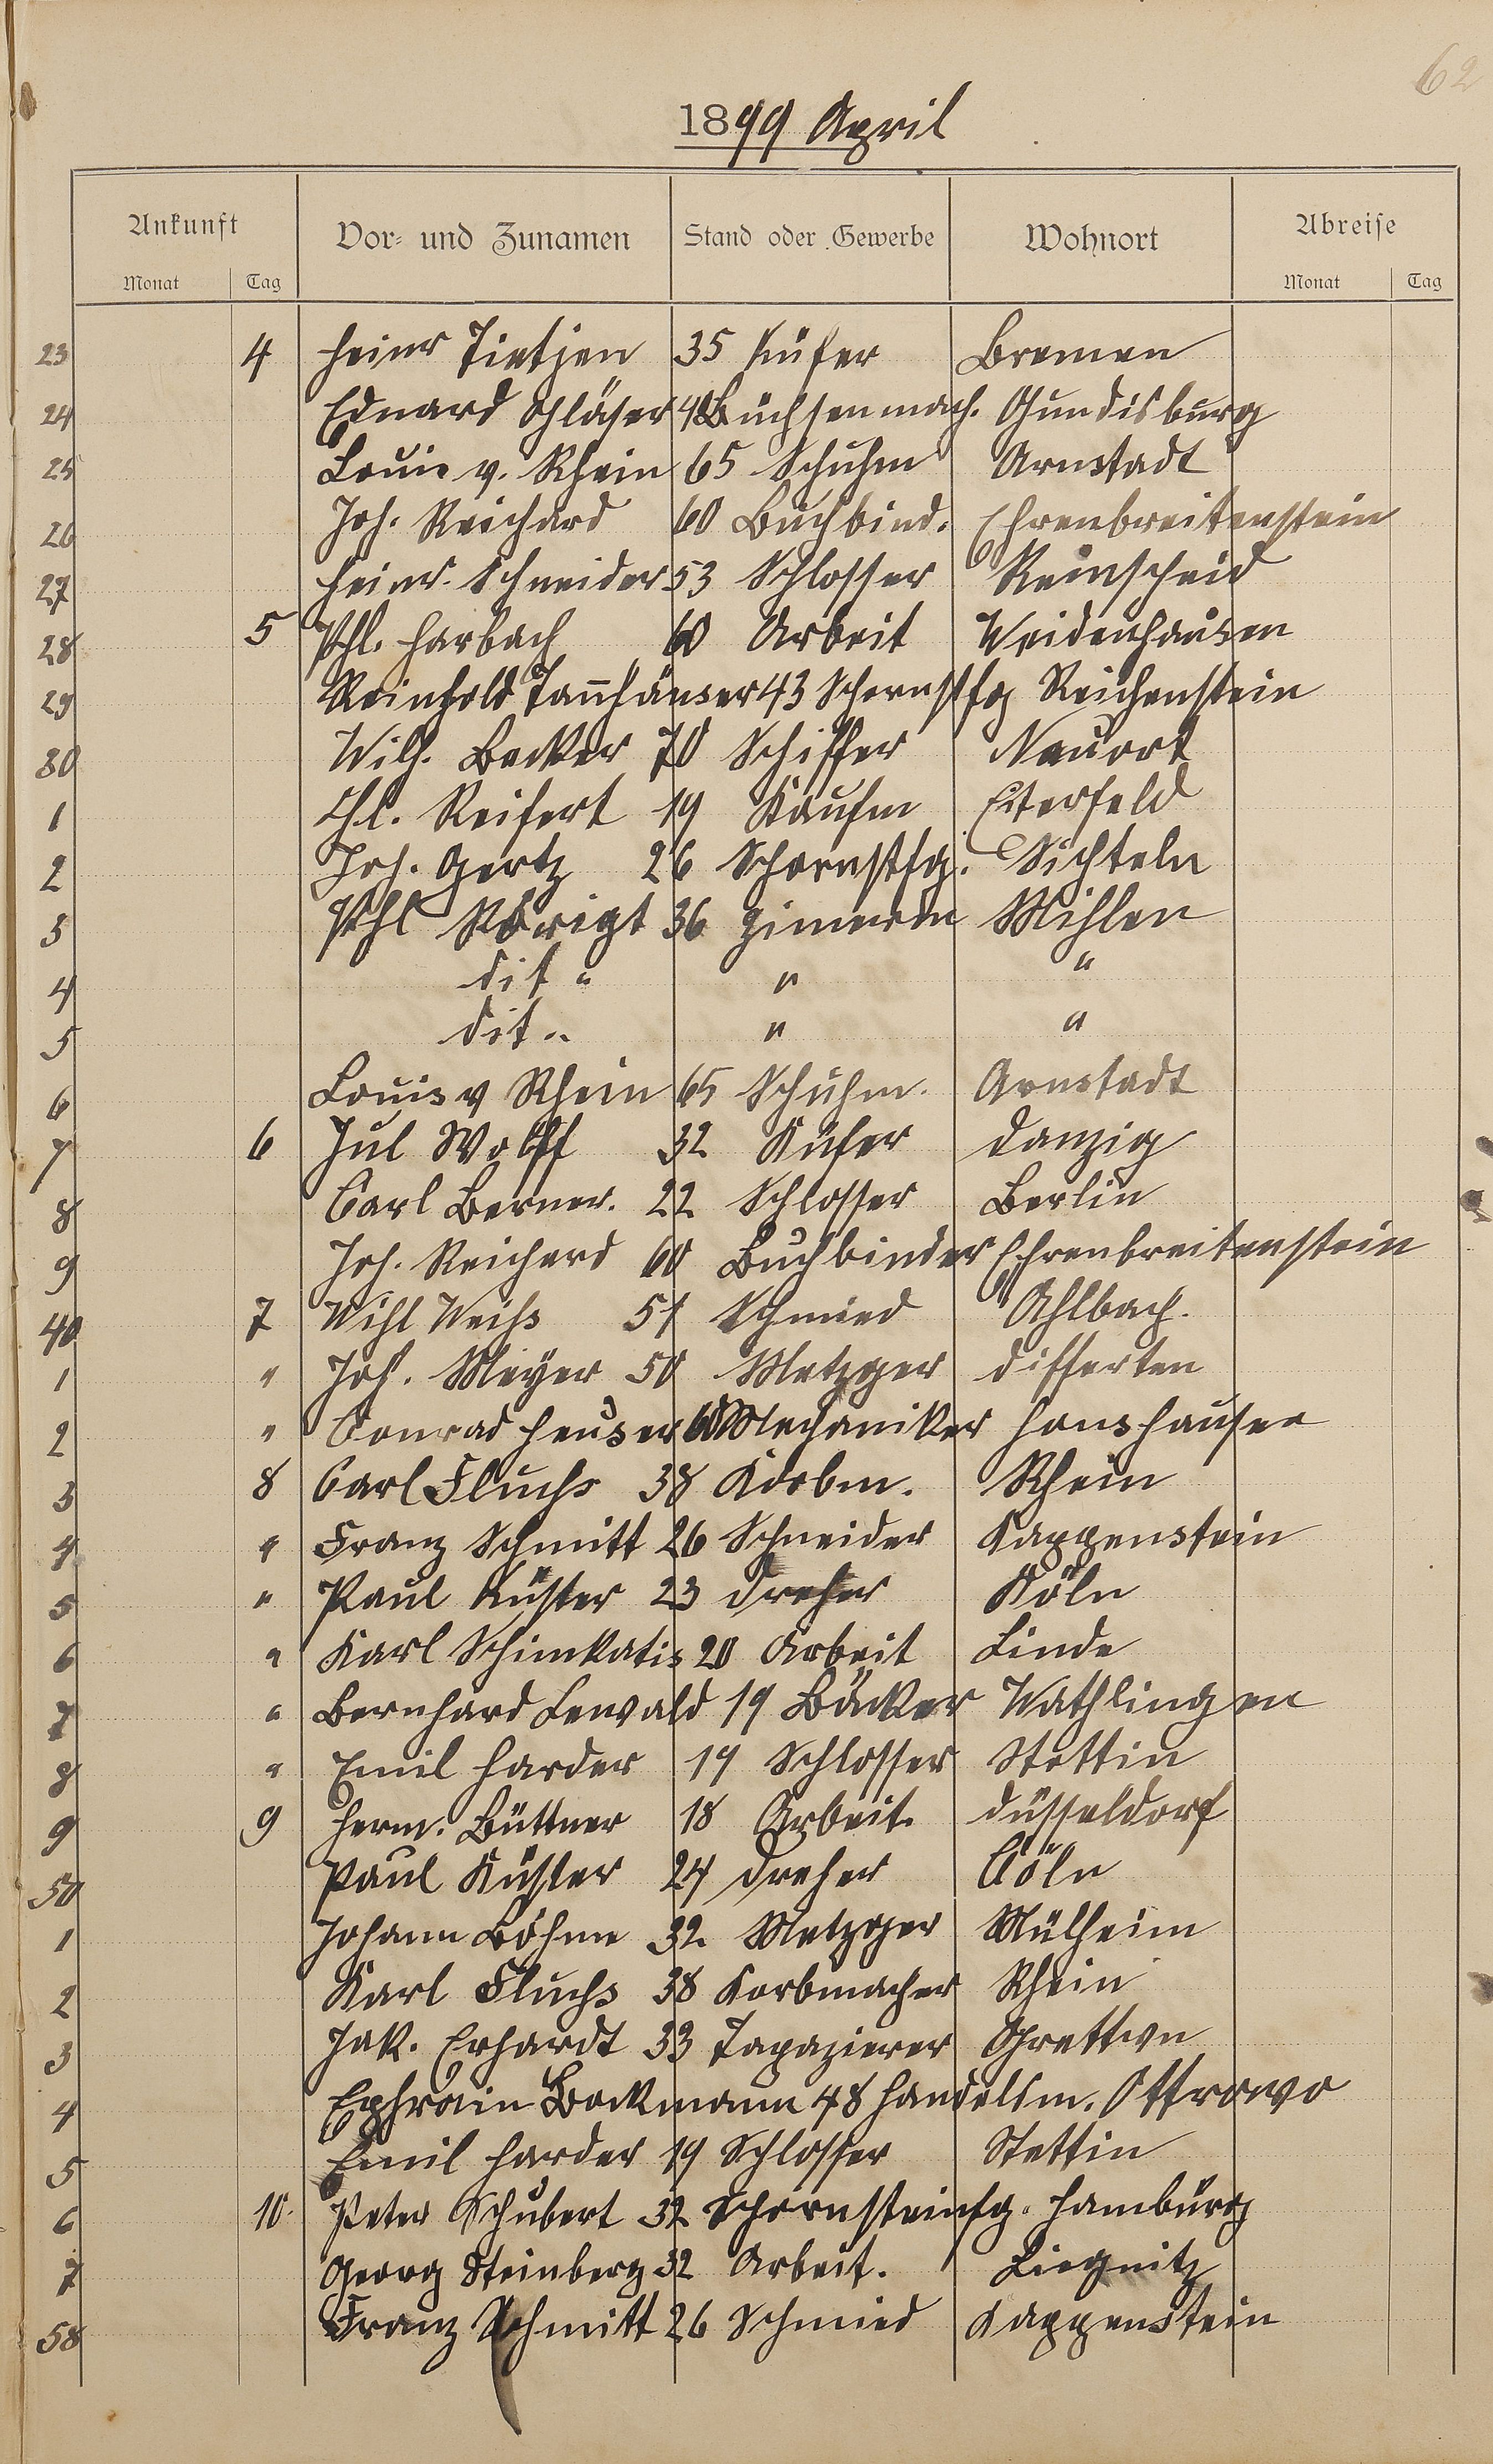 62
1899 April
Ankunft Vor- und Zunamen Stand oder Gewerbe Wohnort Abreise
Monat Tag Monat Tag
23 4 Heinr Tietjen 35 Küfer Bremen
24 Eduard Schläfer 48 Büchsenmach. Gundisburg
25 Louis v. Rhein 65 Schuhm Arnstadt
26 Joh. Reichard 60 Buchbind. Ehrenbreitenstein
27 Heinr. Schneider 53 Schlosser Remscheid
28 5 Phl. Harbach 60 Arbeit Weidenhausen
29 Reinhold Tannhäuser 43 Schornstfg Reichenstein
30 Wilh. Becker 70 Schiffer Neuort
1 Chl. Reifert 19 Kaufm Eiterfeld
2 Joh. Gertz 26 Schornstfg. Sichteln
3 Phl Rörigt 36 Zimerm Mihlen
4 dit " " "
5 dit " " "
6 Louis v Rhein 65 Schuhm. Arnstadt
7 6 Jul Wolff 32 Küfer Danzig
8 Carl Berner. 22 Schlosser Berlin
9 Joh. Reichard 60 Buchbinder Ehrenbreitenstein
40 7 Wihl Weihs 51 Schmied Ahlbach.
1 " Joh. Meyer 50 Metzger Differten
2 " Conrad Heuser 60 Mechaniker Honshausen
3 8 Carl Fluchs 38 Korbm. Rhein
4 " Franz Schmitt 26 Schneider Kappenstein
5 " Paul Küster 23 Dreher Köln
6 " Karl Schimkatis 20 Arbeit Linde
7 " Bernhard Lewald 19 Bäcker Wathlingen
8 " Emil Harder 19 Schlosser Stettin
9 9 Herm. Büttner 18 Arbeit. Düsseldorf
50 Paul Küster 24 Dreher Cöln
1 Johann Böhme 32. Metzger Mülheim
2 Karl Fluchs 38 Korbmacher Rhein
3 Jak. Erhardt 33 Tapazierer
4 Ephraim Bockmann 48 Handelsm. Ostrowo
5 Emil Harder 19 Schlosser Stettin
6 10. Peter Schubert 32 Schornsteinfg. Hamburg
7 Georg Steinberg 32 Arbeit. Liegnitz
58 Franz Schmitt 26 Schmied Kappenstein